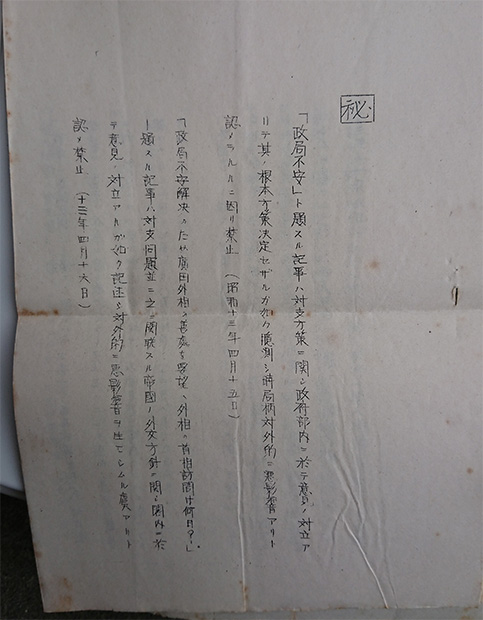 秘
「政局不安」ト題スル記事ハ対支方策ニ関シ政府部内ニ於テ意見ノ対立ア
リテ其ノ根本方策決定セザルガ如ク臆測シ時局柄対外的ニ悪影響アリト
認メラルルニ因リ禁止 (昭和十三年四月十五日)
「政局不安解決のため廣田外相の善処を要望、外相の首相訪問は何日?」
ト題スル記事ハ対支問題並ニ之ニ関聯スル帝國ノ外交方針ニ関シ閣内ニ於
テ意見ノ対立アルガ如ク記述シ対外的ニ悪影響ヲ生ゼシムル虞アリト
認メ禁止 (十三年四月十六日)